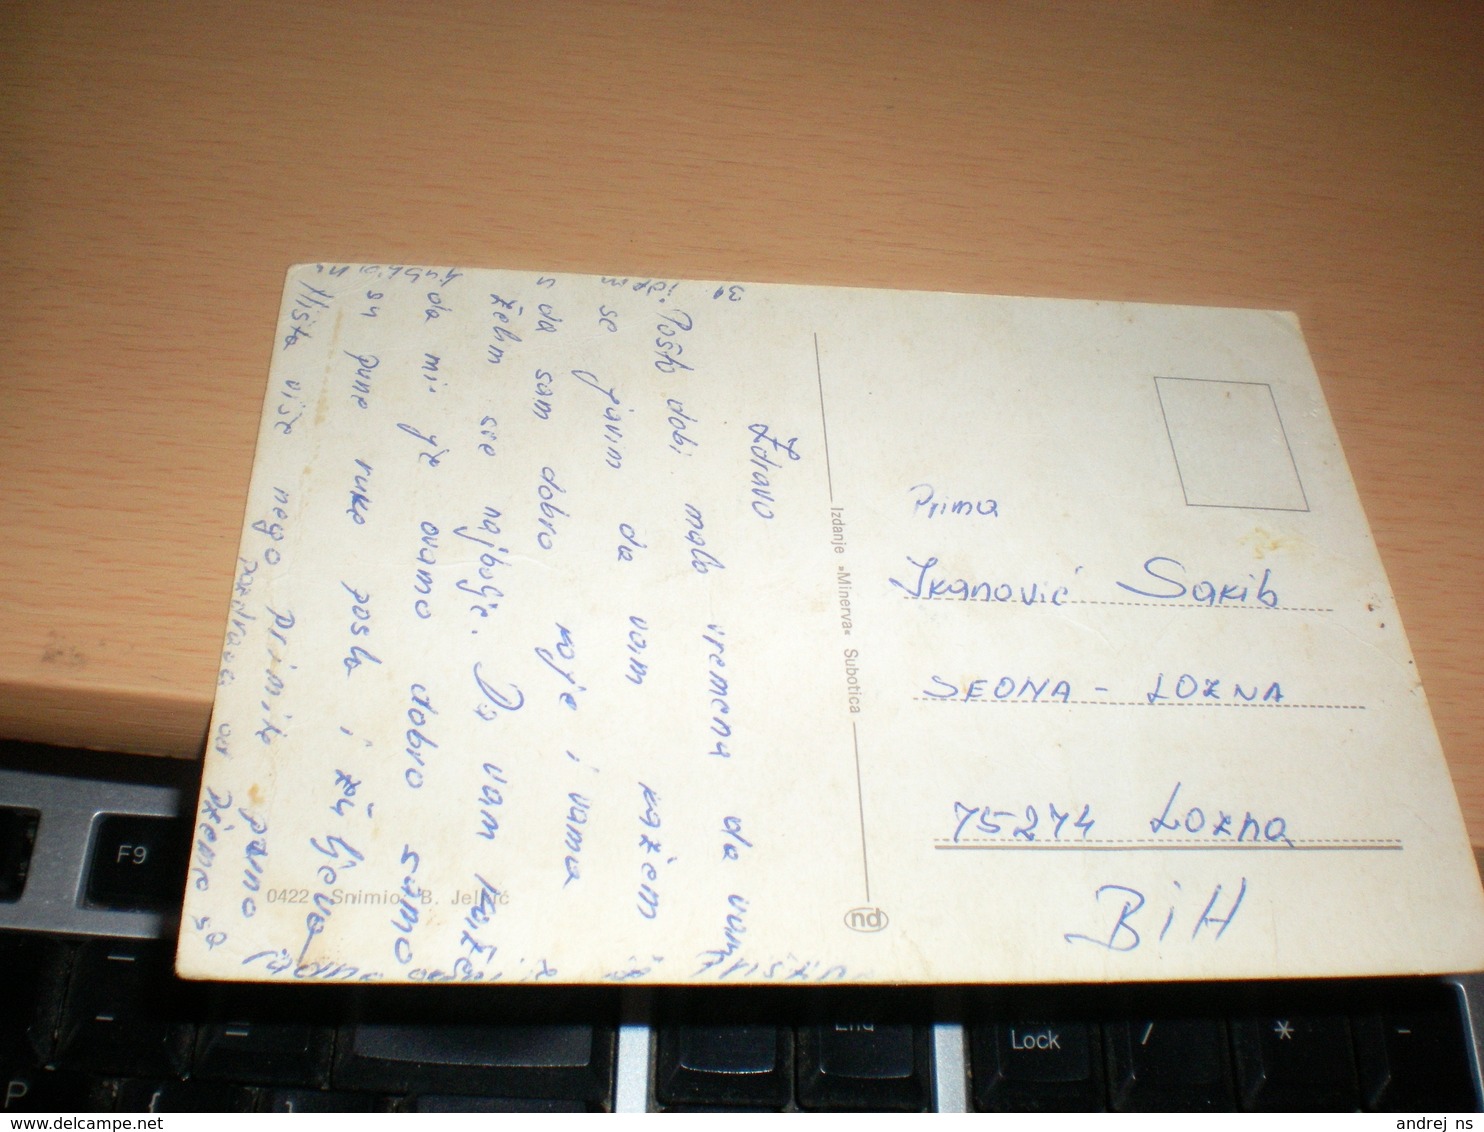 Zdravo
Pošto dobi malo vremena da vam
se javim da vam kažem
da sam dobro koje i vama
želim sve najbolje. Da vam kažem
da mi je ovamo dobro samo
su pune ruke posla i
Ništa više nego primite puno
pozdrava od
Izdanje »Minerva« Subotica
nd
0422 Snimio B.
Prima
Ikanović Sakib
SEONA - LOZNA
75274 Lozna
BiH
F9
P
{
}
=
End
Lock
/
*
-
www.delcampe.net
andrej_ns